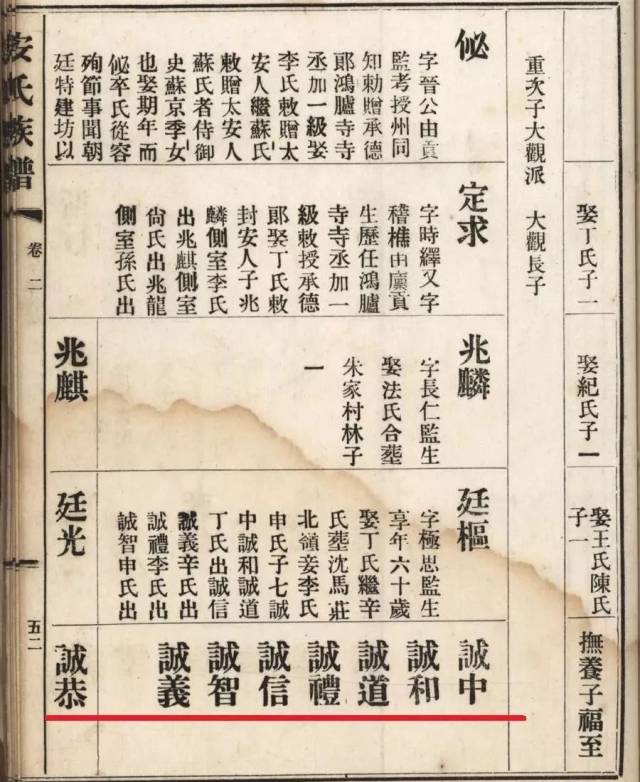 娶丁氏子一
娶紀氏子一
娶王氏陳氏
子一
撫養子福至
重次子大觀派 大觀長子
佖
字晉公由貢
監考授州同
知勅贈承德
郎鴻臚寺寺
丞加一級娶
李氏敕贈太
安人繼蘇氏
敕贈太安人
蘇氏者侍御
史蘇京季女
也娶期年而
佖卒氏從容
殉節事聞朝
廷特建坊以
定求
字時繹又字
稽樵由廩貢
生歷任鴻臚
寺寺丞加一
級敕授承德
郎娶丁氏敕
封安人子兆
麟側室李氏
出兆麒側室
尙氏出兆龍
側室孫氏出
兆麟
字長仁監生
娶法氏合葬
朱家村林子
一
兆麒
廷樞
字極思監生
享年六十歲
娶丁氏繼辛
氏葬沈馬莊
北嶺妾李氏
申氏子七誠
中誠和誠道
丁氏出誠信
誠義辛氏出
誠禮李氏出
誠智申氏出
廷光
誠中
誠和
誠道
誠禮
誠信
誠智
誠義
誠恭
安氏族譜
卷二
五二